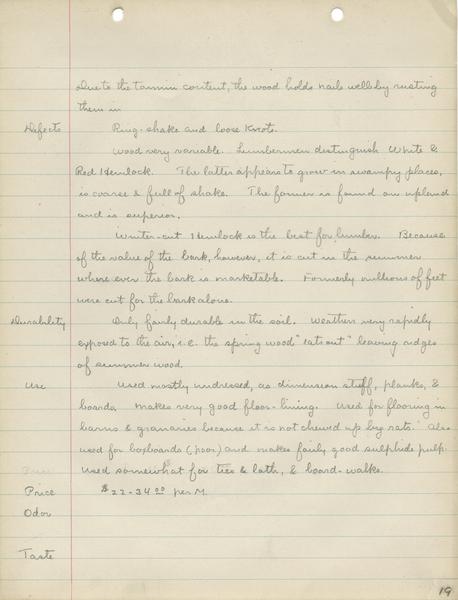 Due to the tannin content, the wood holds nails well by rusting
them in
Defects Ring-shake and loose knots.
Wood very variable. Lumbermen distinguish White &
Red Hemlock. The latter appears to grow in swampy places,
is coarse & full of shake. The former is found on upland
and is superior.
Winter-cut Hemlock is the best for lumber. Because
of the value of the bark, however, it is cut in the summer
where ever the bark is marketable. Formerly millions of feet
were cut for the bark alone.
Durability Only fairly durable in the soil. Weathers very rapidly
exposed to the air, i.e. the spring wood "eats out" leaving ridges
of summer wood.
Use Used mostly undressed, as dimension stuff, planks, &
boards. Makes very good floor-lining. Used for flooring in
barns & granaries because it is not chewed up by rats. Also
used for boxboards (poor) and makes fairly good sulphide pulp.
Used somewhat for ties & lath, & board-walks.
Price $22-34.00 per M.
Odor
Taste
19